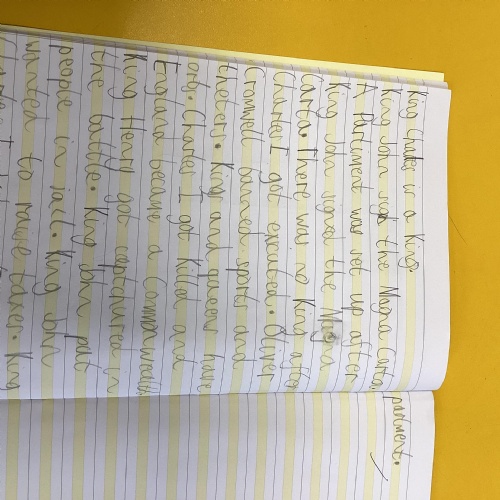 King Charles is a King.
King John sign the Magna Carta.
A Parliment was set up after
King John signed the Magna
Carta. There was no King after
Charles I got executed. Oliver
Cromwell banned sports and
theters. Kings and queens have
orb. Charles I got killed and
England became a Commonwealth.
King Henry got capthured in
the battle. King John put
people in jail. King John
wanted to raise taxes. King
parlment.